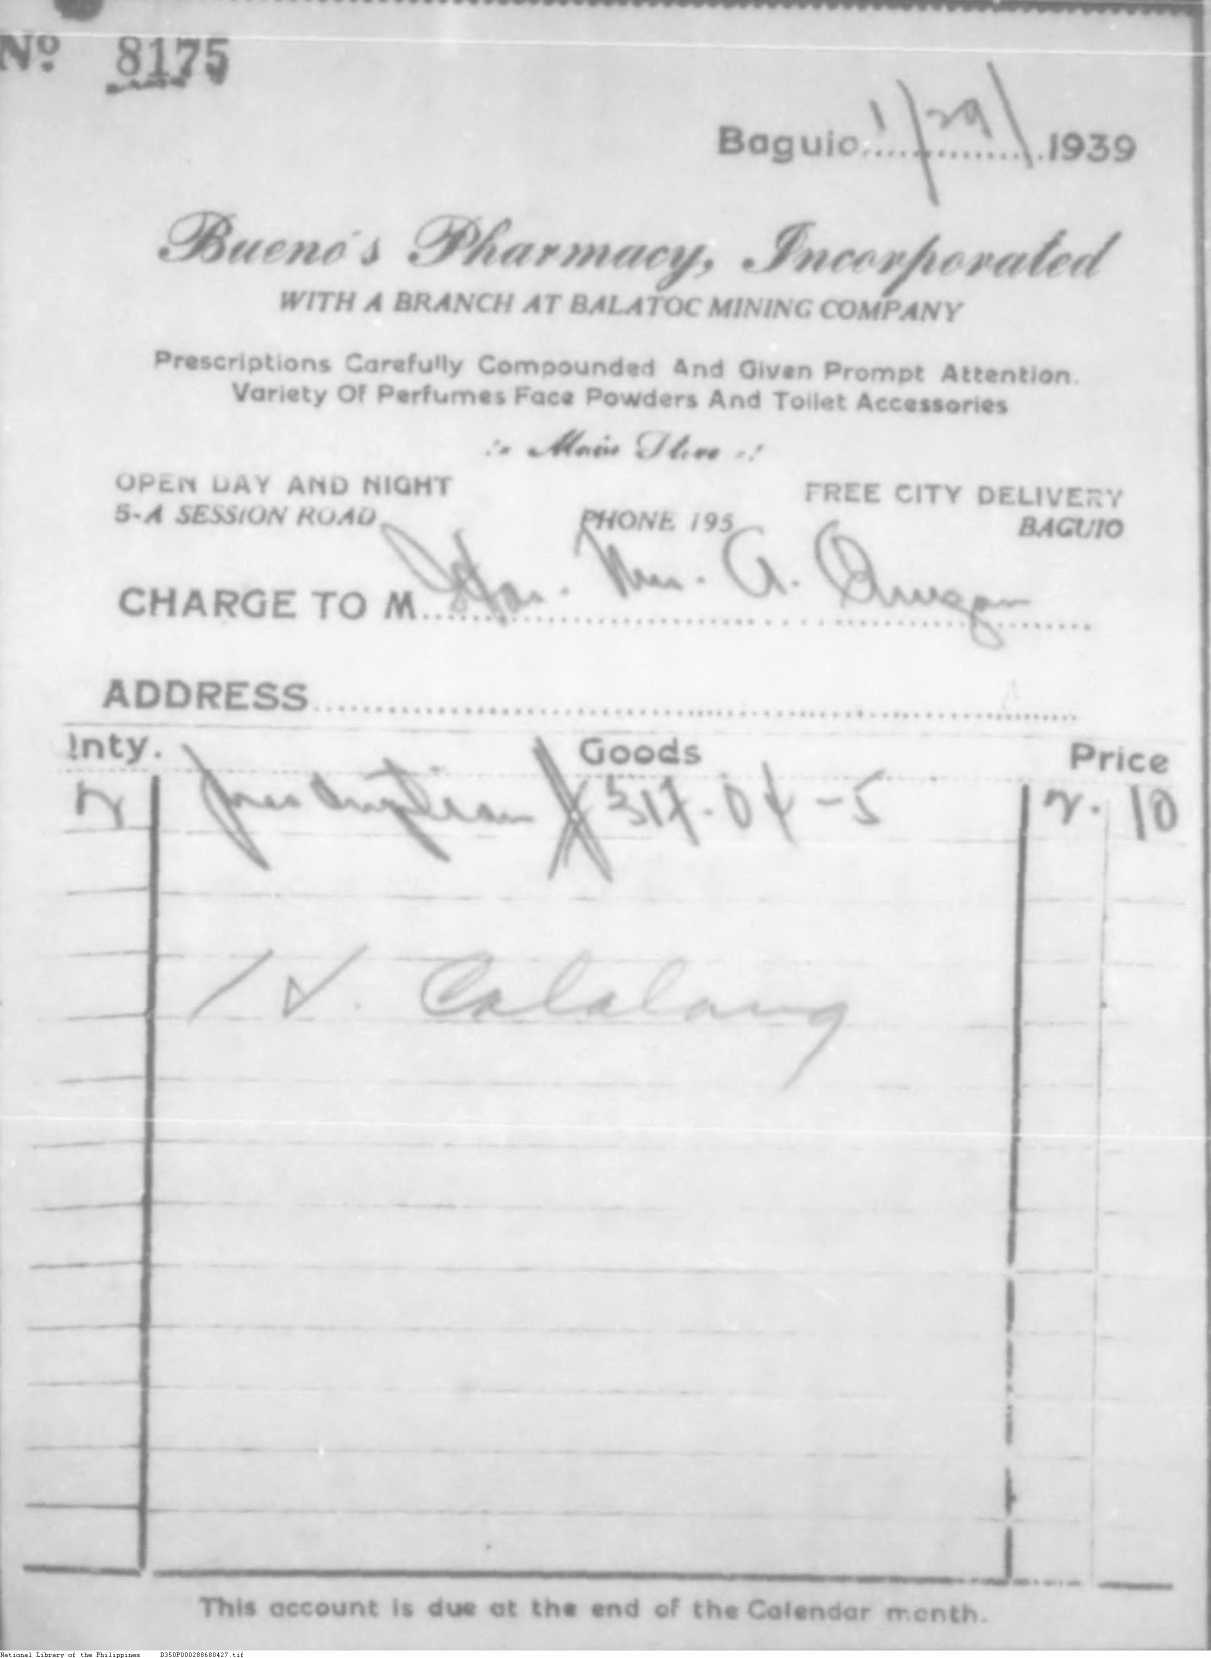 Nº 8175
Baguio 1/29/ 1939
Bueno's Pharmacy, Incorporated
WITH A BRANCH AT BALATOC MINING COMPANY
Prescriptions Carefully Compounded And Given Prompt Attention.
Variety Of Perfumes Face Powders And Toilet Accessories
Main Store
OPEN DAY AND NIGHT FREE CITY DELIVERY
5-A SESSION ROAD PHONE 195 BAGUIO
CHARGE TO M
ADDRESS
nty. Goods Price
2 prescription # 317.04-5 2.10
Calalang
This account is due at the end of the Calendar month.
National Library of the Philippines D350P000288680427.tif